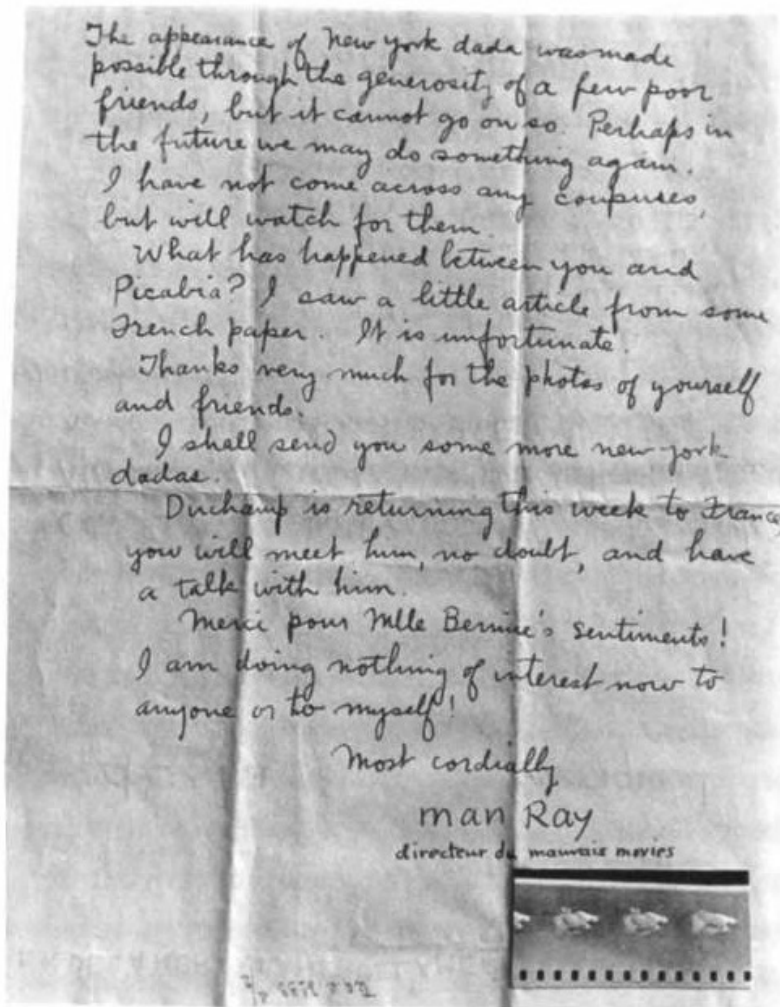 The appearance of New York dada was made
possible through the generosity of a few poor
friends, but it cannot go on so. Perhaps in
the future we may do something again.
I have not come across any coupures,
but will watch for them.
What has happened between you and
Picabia? I saw a little article from some
French paper. It is unfortunate.
Thanks very much for the photos of yourself
and friends.
I shall send you some more new york
dadas.
Duchamp is returning this week to France,
you will meet him, no doubt, and have
a talk with him.
Merci pour Mlle Bernice's sentiments!
I am doing nothing of interest now to
anyone or to myself!
Most cordially
man Ray
directeur du mauvais movies